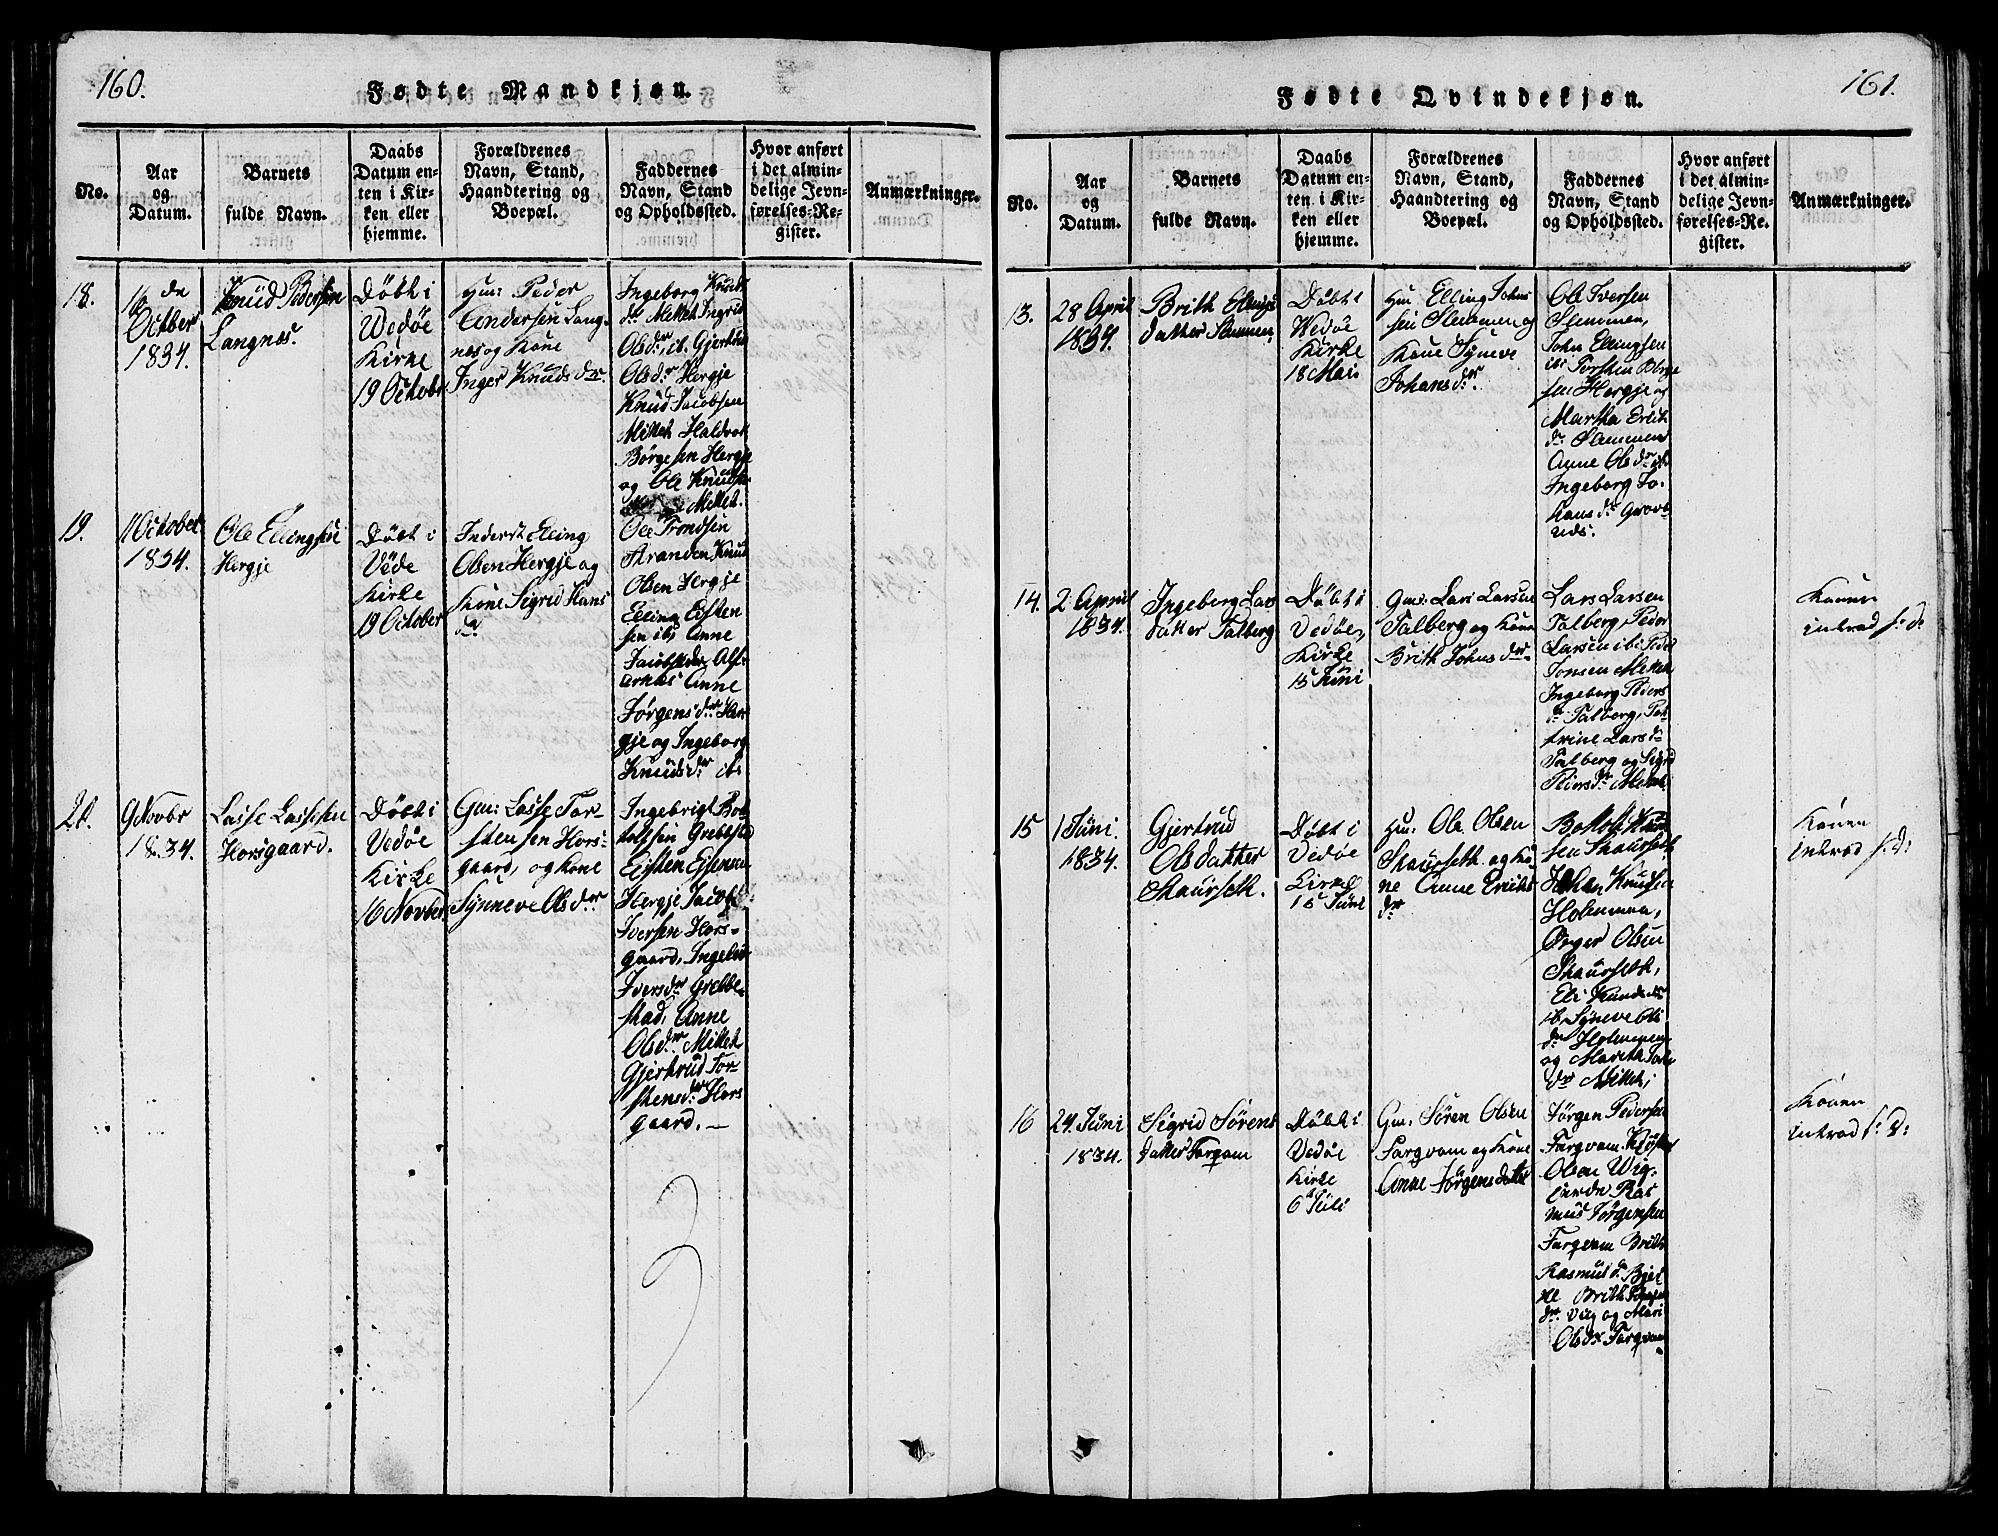 160.
Fødte Mandkjøn.
No.
Aar
og
Datum.
Barnets
fulde Navn.
Daabs
Datum en-
ten i Kir-
ken eller
hjemme.
Forældrenes
Navn, Stand,
Haandtering og
Boepæl.
Faddernes
Navn, Stand
og Opholdssted.
Hvor anført
i det almin-
delige Jevn-
førelses-Re-
gister.
Anmærkninger.
18.
16 de
Octber
1834.
Knud Pedersen
Langnes.
Døbt i
Wedøe
Kirke
19 October
Gm: Peder
Andersen Lang-
nes og Kone
Inger Knuds dr.
Ingeborg Knuds
dr Mittet Ingrid
Olsdr, ib. Gjertrud
Olsdr Hergje
Knud Jacobsen
Mittet Haldvor
Børgesen Hergje
og Ole Knudsen
Mittet.
19.
11 October
1834.
Ole Ellingsen
Hergje
Døbt i
Vedø
Kirke
19 October
Inderst Elling
Olsen Hergje og
Kone Sigrid Hans
dr
Ole Trondsen
Stranden Knud
Olsen Hergje
Elling Eisten
sen ibi Anne
Jacobsdr Alf-
arnæs Anne
Jørgens dr Her-
gje og Ingeborg
Knuds dr ibi
20.
9 Novbr
1834.
Lasse Lassesen
Horsgaard.
Døbt i
Vedøe
Kirke
16 Novber
Gm: Lasse Tor-
stensen Hors-
gaard, og Kone
Synneve Ols dr
Ingebrigt Bot-
tolfsen Grebstad
Eisten Eistensen
Hergje Jacob
Iversen Hors-
gaard, Ingebor
Iversdr Grebbe-
stad, Anne
Olsdr Mittet
Gjertrud Tor-
stensdr Hors
gaard. —
161.
Fødte Qvindekjøn.
No.
Aar
og
Datum.
Barnets
fulde Navn.
Daabs
Datum en-
ten i Kir-
ken eller
hjemme.
Forældrenes
Navn, Stand,
Haandtering og
Boepæl.
Faddernes
Navn, Stand
og Opholdssted.
Hvor anført
i det almin-
delige Jevn-
førelses-Re-
gister.
Anmærkninger.
13.
28 April
1834.
Brith Ellings
datter Slemmen.
Døbt i
Wedøe
Kirke
18 Mai
Gm Elling Johns
sen Slemmen og
Kone Syneve
Johans dr.
Ole Iversen
Slemmen,
John Ellingsen
ibi Torsten Børge
sen Hergje og
Martha Erick
dr Slemmen
Anne Ols dr ib.
Ingeborg Jo-
hans dr
14.
2 April
1834.
Ingeborg Lars
datter Talberg
Døbt i
Vedøe
Kirke
15 Juni
Gm: Lars Larsen
Talberg og Kone
Brith Johns dr
Lars Larsen
Talberg, Peder
Larsen ibi Peder
Jonsen Mittet
Ingeborg Peders
dr Talberg, Pet-
trine Lars dr
Talberg og Sigrid
Mittet
Konen
introd s: d:
15
1 Juni
1834.
Gjertrud
Olsdatter
Skaarseth.
Døbt i
Vedøe
Kirke
15 Juni
Gm: Ole Olsen
Skaarseth og Ko-
ne Anne Ericks
dr
Bottolf Knud
sen Skaarseth,
Johan Knudsen
Holemmen,
Olsen
Skaarseth,
Eli Knudsdr
ib Syneve Ols
dr Holemmen
og Marith
dr Mittet,
Konen
introd s: d:
16
24. Juni
1834.
Sigrid Sørens
datter Torqvam
Døbt i
Vedøe
Kirke
6 Juli
Gm: Søren Olsen
Torqvam og Kone
Anne Jørgens datter
Jørgen Pedersen
Torqvam
Olsen
Ras
mus Jørgensen
Torqvam Brith
Rasmus dr
Brith
dr og Mari
Olsdr Torqvam
Konen
introd s: d: